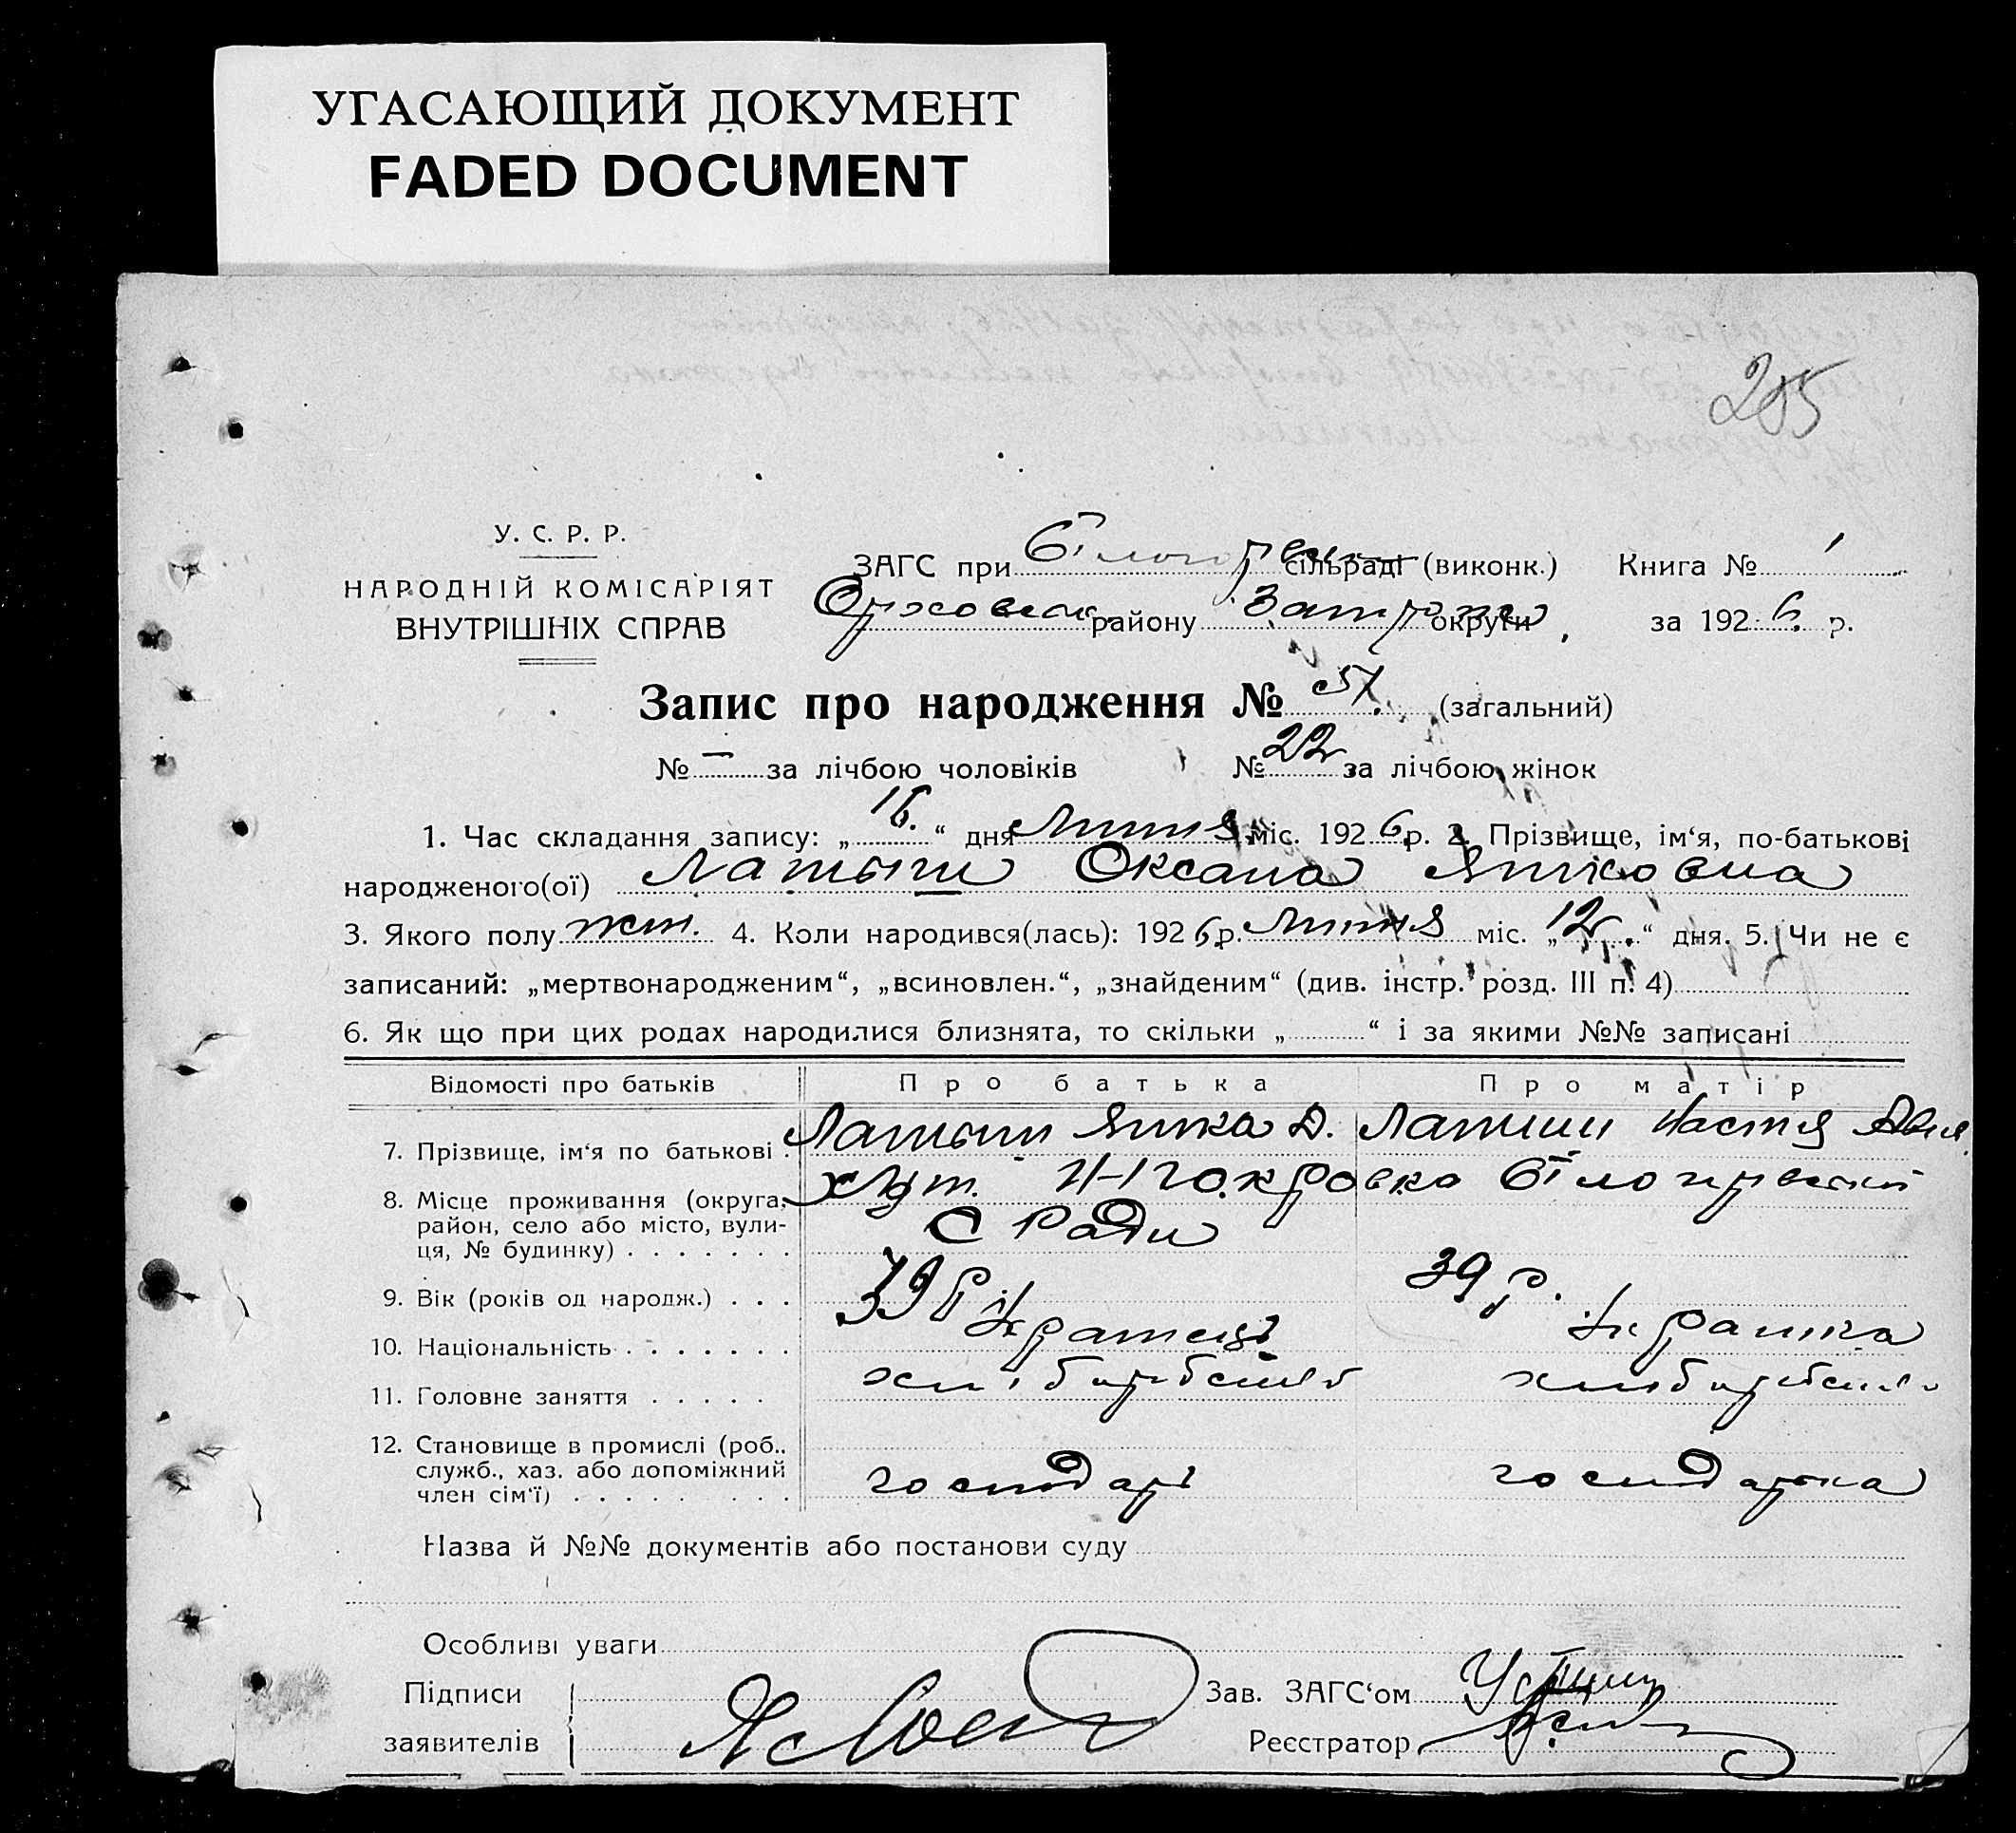 УГАСАЮЩИЙ ДОКУМЕНТ
FADED DOCUMENT
285
У. С. Р. Р.
НАРОДНІЙ КОМІСАРІЯТ
ВНУТРІШНІХ СПРАВ
ЗАГС при сільраді (виконк.) Книга № 1
району округи за 1926 р.
Запис про народження № 57. (загальний)
№ — за лічбою чоловіків № 22 за лічбою жінок
1. Час складання запису: „16.“ дня Липня міс. 1926 р. 2. Прізвище, ім‘я, по-батькові
народженого(ої) Латыш Оксана Яковна
3. Якого полу жен. 4. Коли народився(лась): 1926 р. Липня міс. „12.“ дня. 5. Чи не є
записаний: „мертвонародженим“, „всиновлен.“, „знайденим“ (див. інстр. розд. III п. 4)
6. Як що при цих родах народилися близнята, то скільки „ “ і за якими №№ записані
Відомості про батьків Про батька Про матір
7. Прізвище, ім‘я по батькові Латыш Д. Латиш Настя
8. Місце проживання (округа, хут. Н-Покровка Білогірвської
район, село або місто, вули- С Ради
ця, № будинку)
9. Вік (років од народж.) 39 р 39 р.
10. Національність Українець Українка
11. Головне заняття хліборобство хліборобство
12. Становище в промислі (роб.,
служб., хаз. або допоміжний господарь господарька
член сім‘ї)
Назва й №№ документів або постанови суду
Особливі уваги
Підписи Зав. ЗАГС‘ом
заявителів Реєстратор